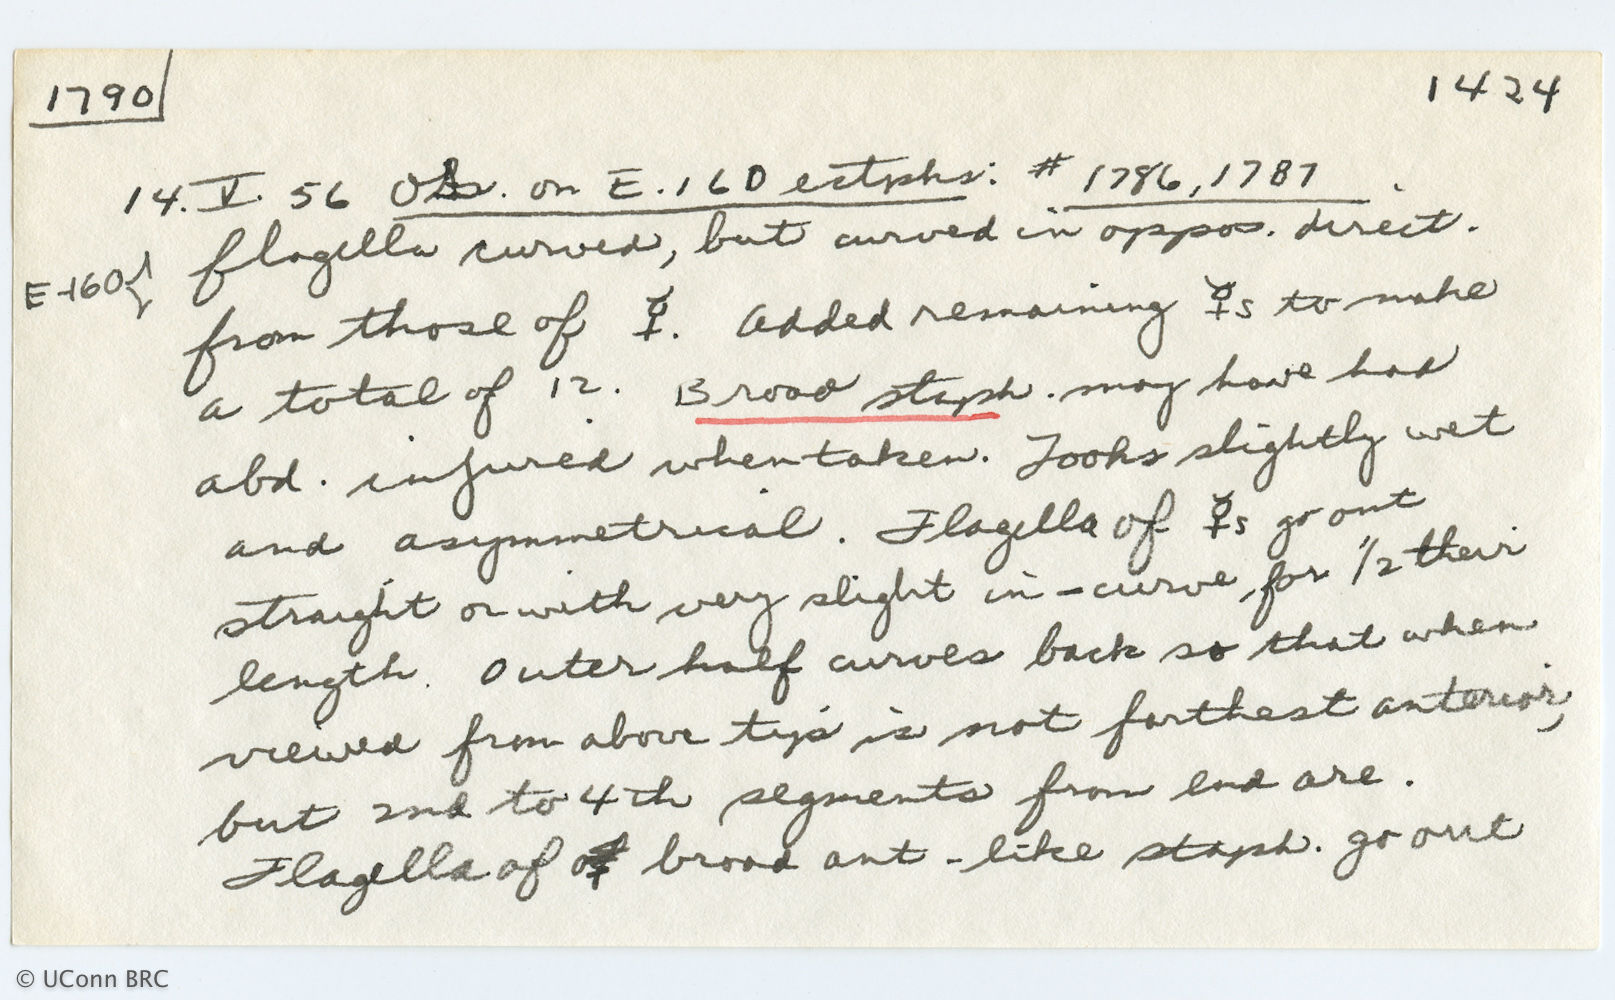 1790
1424
14.V.56 Obs. on E.160 ectphs: # 1786, 1787.
E-160} flagella curved, but curved in oppos. direct.
from those of ☿. Added remaining ☿s to make
a total of 12. Broad staph. may have had
abd. injured when taken. Looks slightly wet
and asymmetrical. Flagella of ☿s go out
straight or with very slight in-curve, for 1/2 their
length. Outer half curves back so that when
viewed from above tip is not farthest anterior,
but 2nd to 4th segments from end are.
Flagella of broad ant-like staph. go out
© UConn BRC